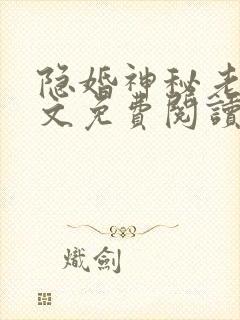 隐婚神秘老
文免費閱讀
熾劍